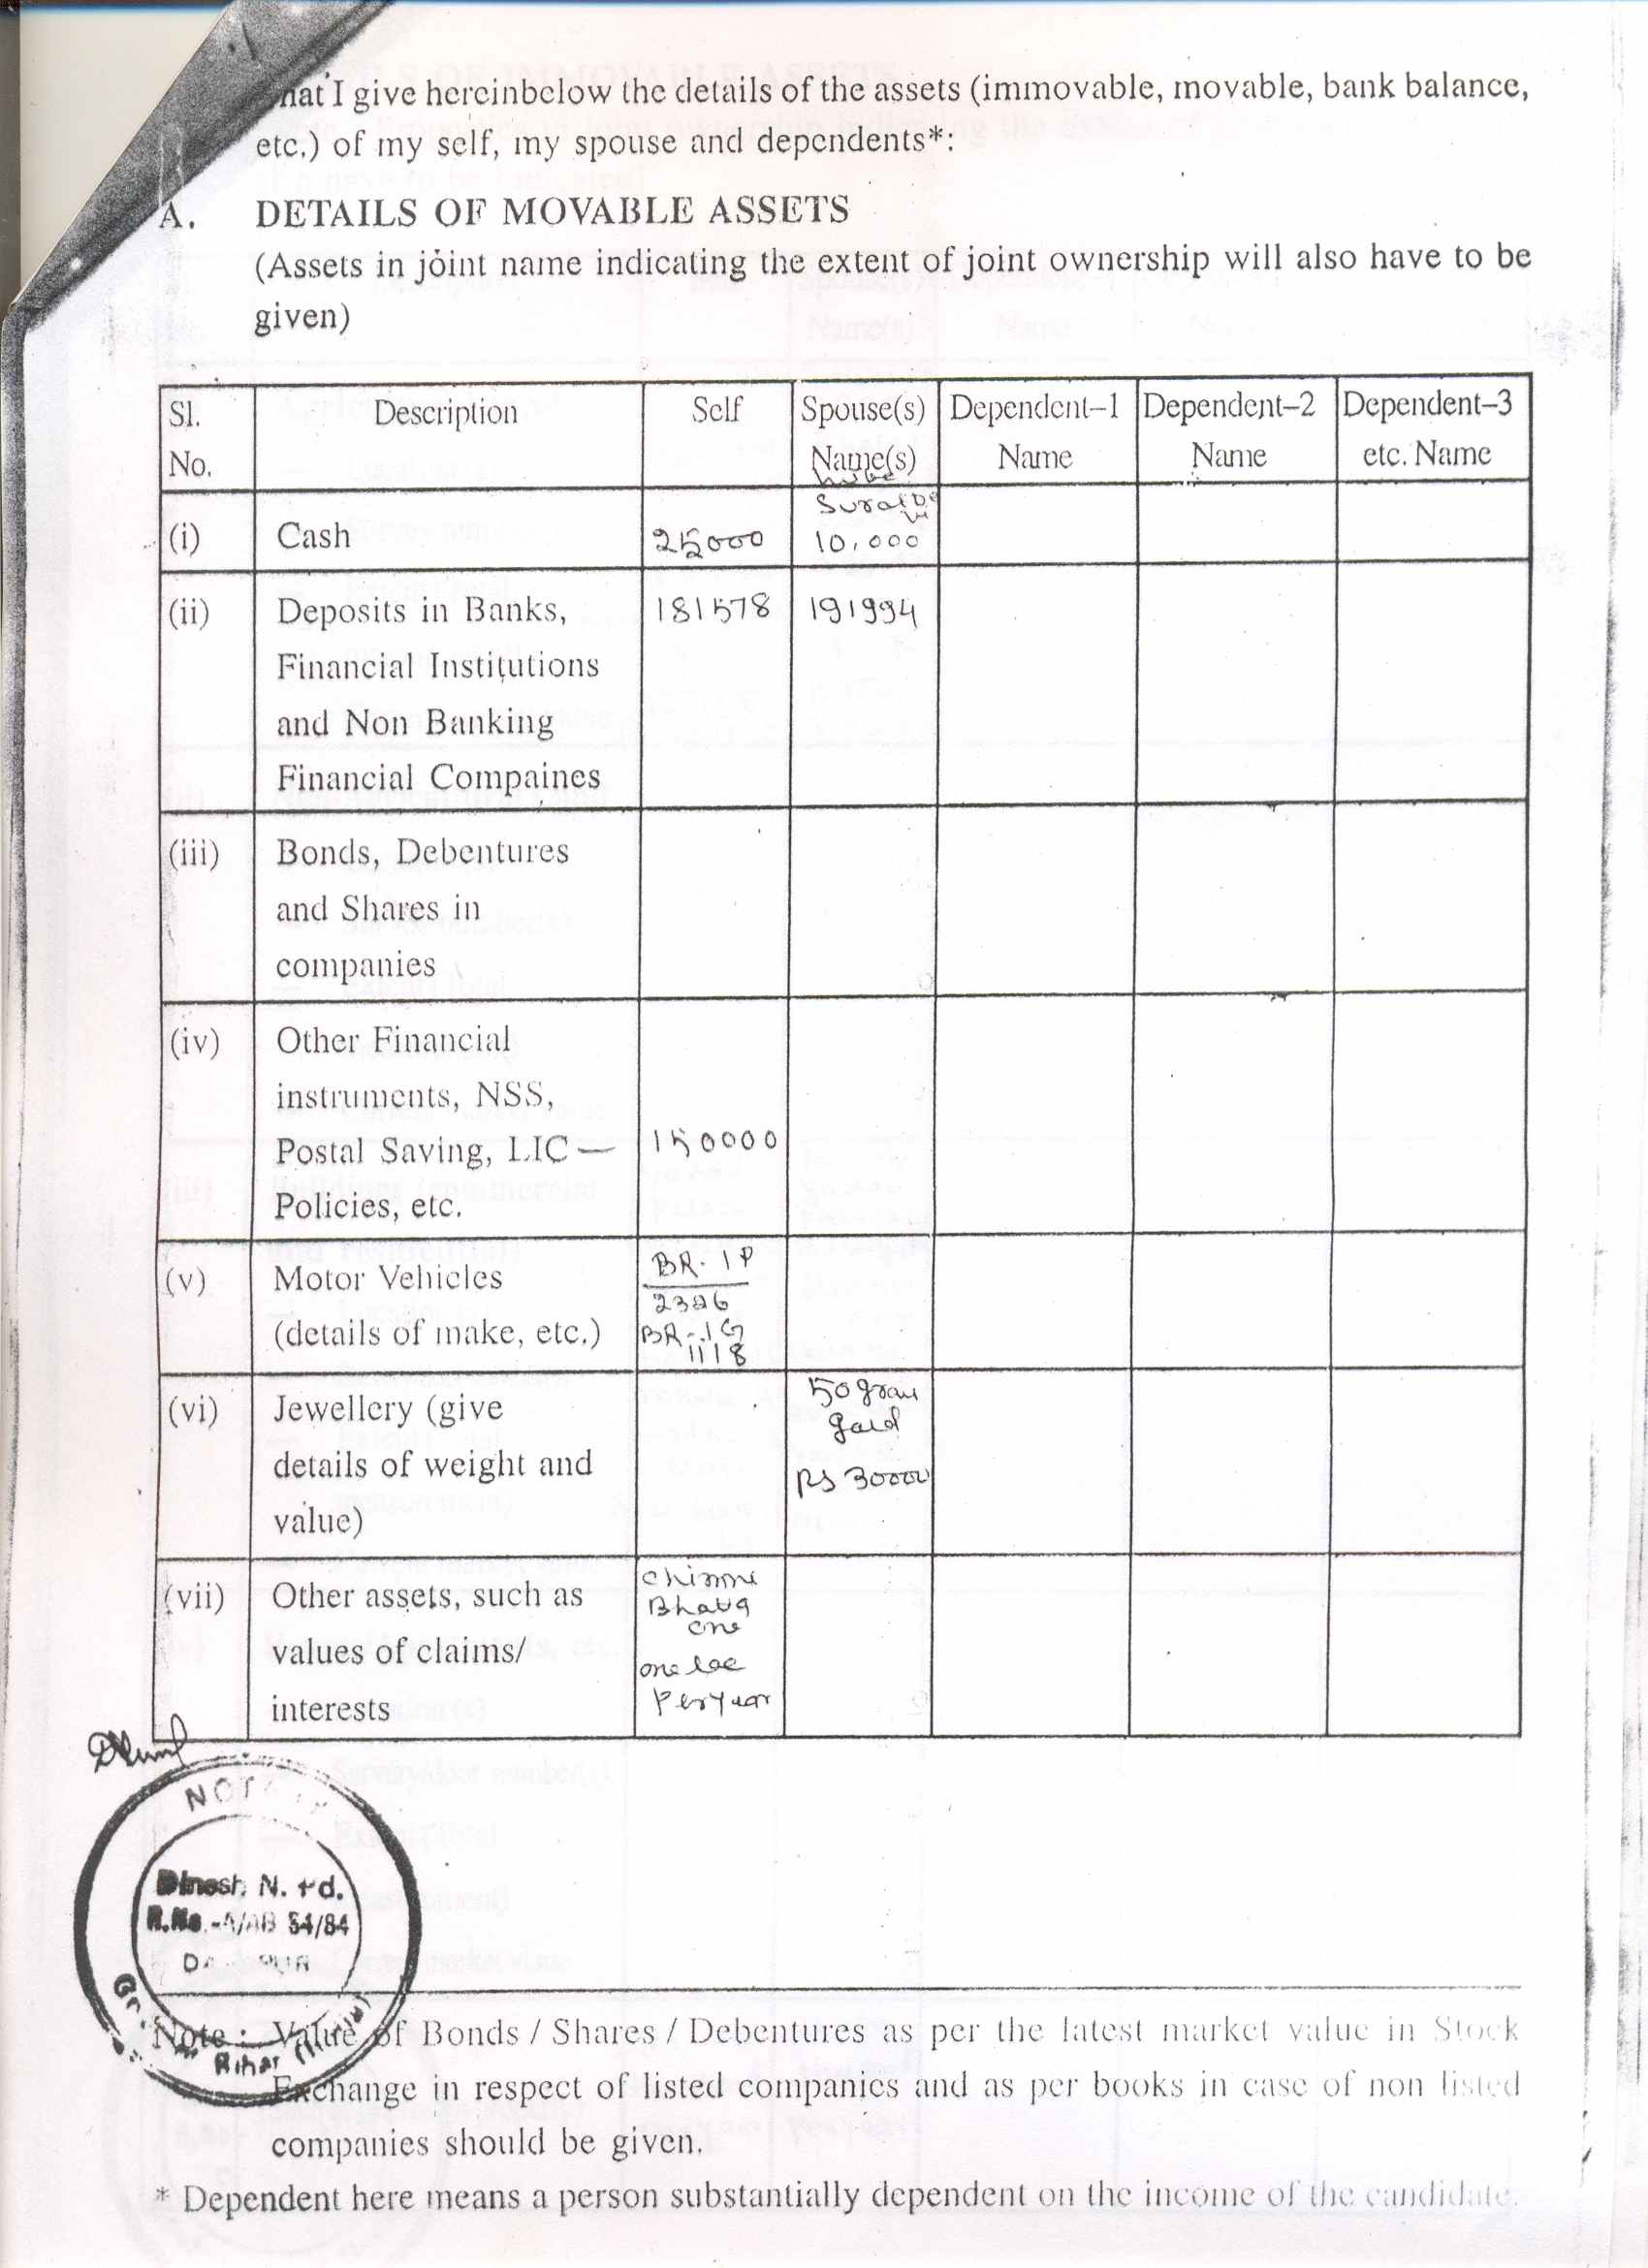 that I give hereinbelow the details of the assets (immovable, movable, bank balance,
etc.) of my self, my spouse and dependents*:
A. DETAILS OF MOVABLE ASSETS
(Assets in joint name indicating the extent of joint ownership will also have to be
given)
Sl. No. Description Self Spouse(s) Name(s) Dependent–1 Name Dependent–2 Name Dependent–3 etc. Name
(i) Cash 25000 10,000
(ii) Deposits in Banks, 181578 191994
Financial Institutions
and Non Banking
Financial Compaines
(iii) Bonds, Debentures
and Shares in
companies
(iv) Other Financial
instruments, NSS,
Postal Saving, LIC — 150000
Policies, etc.
(v) Motor Vehicles BR-1P
(details of make, etc.) BR-1G
1118
(vi) Jewellery (give 50 gram
details of weight and gold
value) Rs 30000
(vii) Other assets, such as
values of claims/ one lac
interests Per year
NOTARY
Dinesh N. Pd.
R.No.-A/AB 54/84
Bihar
Note : Value of Bonds / Shares / Debentures as per the latest market value in Stock
Exchange in respect of listed companies and as per books in case of non listed
companies should be given.
* Dependent here means a person substantially dependent on the income of the candidate.